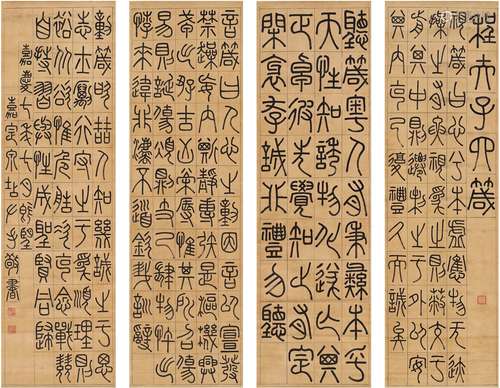 程夫子四箴
視箴曰心兮本虛應物無迹
操之有要視為之則蔽交于
前其中則遷制之于外以安
其內克己復禮久而誠矣
聽箴粵人有秉彝本乎
天性知誘物化遂亡其
正卓彼先覺知止有定
閑邪存誠非禮勿聽
言箴曰人心之動因言以宣發
禁躁妄內斯靜專矧是樞機興
戎出好吉凶榮辱惟其所召傷
易則誕傷煩則支己肆物忤出
悖來違非法不道欽哉訓辭
動箴曰哲人知幾誠之于思
志士勵行守之于為順理則
裕從欲惟危造次克念戰兢
自持習與性成聖賢同歸
嘉慶七年七月既望
嘉定錢坫左手書